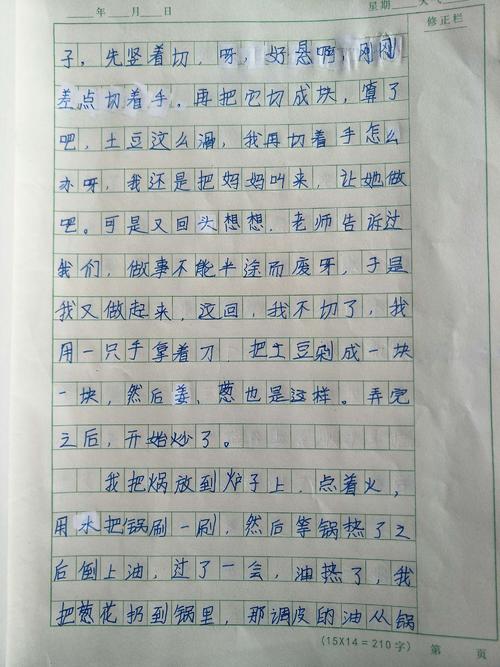 年 月 日 星期 天气
修正栏
子，先竖着切，呀，好悬啊，刚刚
差点切着手。再把它切成块，算了
吧，土豆这么滑，我再切着手怎么
办呀，我还是把妈妈叫来，让她做
吧。可是又回头想想，老师告诉过
我们，做事不能半途而废呀，于是
我又做起来，这回，我不切了，我
用一只手拿着刀，把土豆剁成一块
一块，然后姜、葱也是这样。弄完
之后，开始炒了。
我把锅放到炉子上，点着火，
用水把锅刷一刷，然后等锅热了之
后倒上油，过了一会，油热了，我
把葱花扔到锅里，那调皮的油从锅
(15×14=210字) 第 页